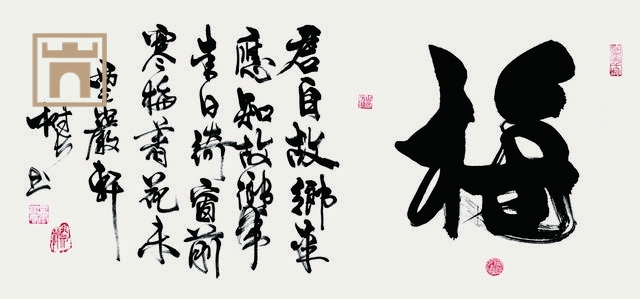 梅
君自故鄉來
應知故鄉事
来日綺窗前
寒梅著花未
軒